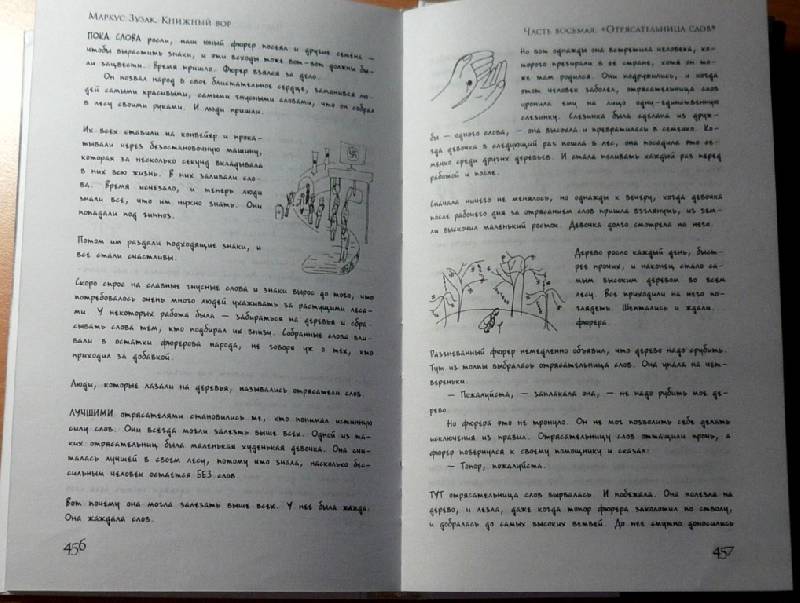 Маркус Зузак. Книжный вор
ПОКА СЛОВА росли, наш юный фюрер посеял и другие семена —
чтобы вырастить знаки, и эти всходы тоже вот-вот должны бы-
ли зацвести. Время пришло. Фюрер взялся за дело.
Он позвал народ в свое блистательное сердце, заманивая лю-
дей самыми красивыми, самыми гнусными словами, что он собрал
в лесу своими руками. И люди пришли.
Их всех ставили на конвейер и прока-
тывали через безостановочную машину,
которая за несколько секунд вкладывала
в них всю жизнь. В них заливали сло-
ва. Время исчезало, и теперь люди
знали все, что им нужно знать. Они
попадали под гипноз.
Потом им раздали подходящие знаки, и
все стали счастливы.
Скоро спрос на славные гнусные слова и знаки вырос до того, что
потребовалось очень много людей ухаживать за растущими леса-
ми. У некоторых работа была — забираться на деревья и сбра-
сывать слова тем, кто подбирал их внизу. Собранные слова вли-
вали в остатки фюрерова народа, не говоря уж о тех, кто
приходил за добавкой.
Люди, которые лазали на деревья, назывались отрясатели слов.
ЛУЧШИМИ отрясателями становились те, кто понимал истинную
силу слов. Они всегда могли залезть выше всех. Одной из та-
ких отрясательниц была маленькая худенькая девочка. Она счи-
талась лучшей в своем лесу, потому что знала, насколько бес-
сильным человек остается БЕЗ слов.
Вот почему она могла залезать выше всех. У нее была жажда.
Она жаждала слов.
456
Часть восьмая. «Отрясательница слов»
Но вот однажды она встретила человека, ко-
торого презирали в ее стране, хотя он то-
же там родился. Они подружились, и когда
этот человек заболел, отрясательница слов
уронила ему на лицо одну-единственную
слезинку. Слезинка была сделана из друж-
бы — одного слова, — она высохла и превратилась в семечко. Ко-
гда девочка в следующий раз пошла в лес, она посадила это се-
мечко среди других деревьев. И стала поливать каждый раз перед
работой и после.
Сначала ничего не менялось, но однажды к вечеру, когда девочка
после рабочего дня за отрясанием слов пришла взглянуть, из зем-
ли выскочил маленький росток. Девочка долго смотрела на него.
Дерево росло каждый день, быст-
рее прочих, и наконец, стало са-
мым высоким деревом во всем
лесу. Все приходили на него по-
глядеть. Шептались и ждали.
фюрера.
Разгневанный фюрер немедленно объявил, что дерево надо срубить.
Тут из толпы выбралась отрясательница слов. Она упала на чет-
вереньки.
— Пожалуйста, — заплакала она, — не надо рубить мое де-
рево.
Но фюрера это не тронуло. Он не мог позволить себе делать
исключения из правил. Отрясательницу слов оттащили прочь, а
фюрер повернулся к своему помощнику и сказал:
— Топор, пожалуйста.
ТУТ отрясательница слов вырвалась. И побежала. Она полезла на
дерево, и лезла, даже когда топор фюрера заколотил по стволу,
и добралась до самых высоких ветвей. До нее смутно доносились
457